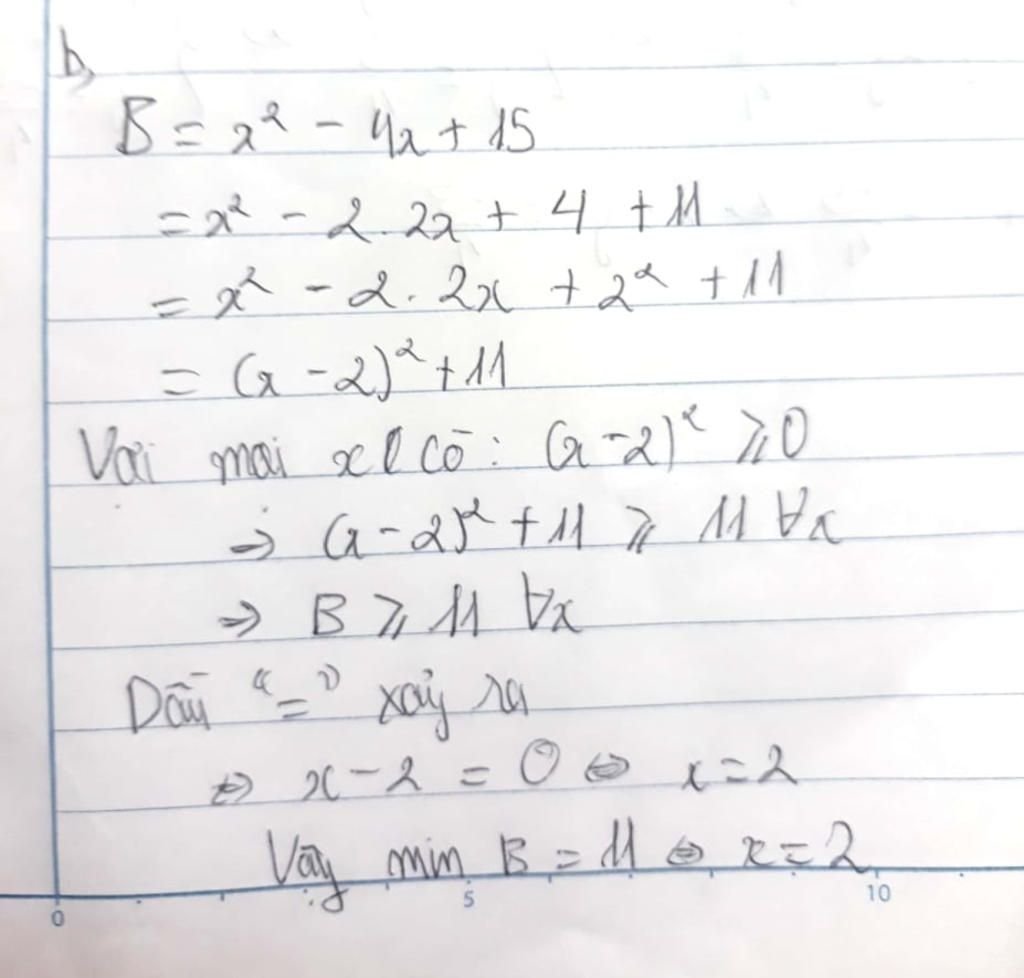 b,
B = x² - 4x + 15
= x² - 2. 2x + 4 + 11
= x² - 2. 2x + 2² + 11
= (x - 2)² + 11
Với mọi x có: (x - 2)² ⩾ 0
⇒ (x - 2)² + 11 ⩾ 11 ∀x
⇒ B ⩾ 11 ∀x
Dấu "=" xảy ra
⇔ x - 2 = 0 ⇔ x = 2
Vậy min B = 11 ⇔ x = 2
0 5 10